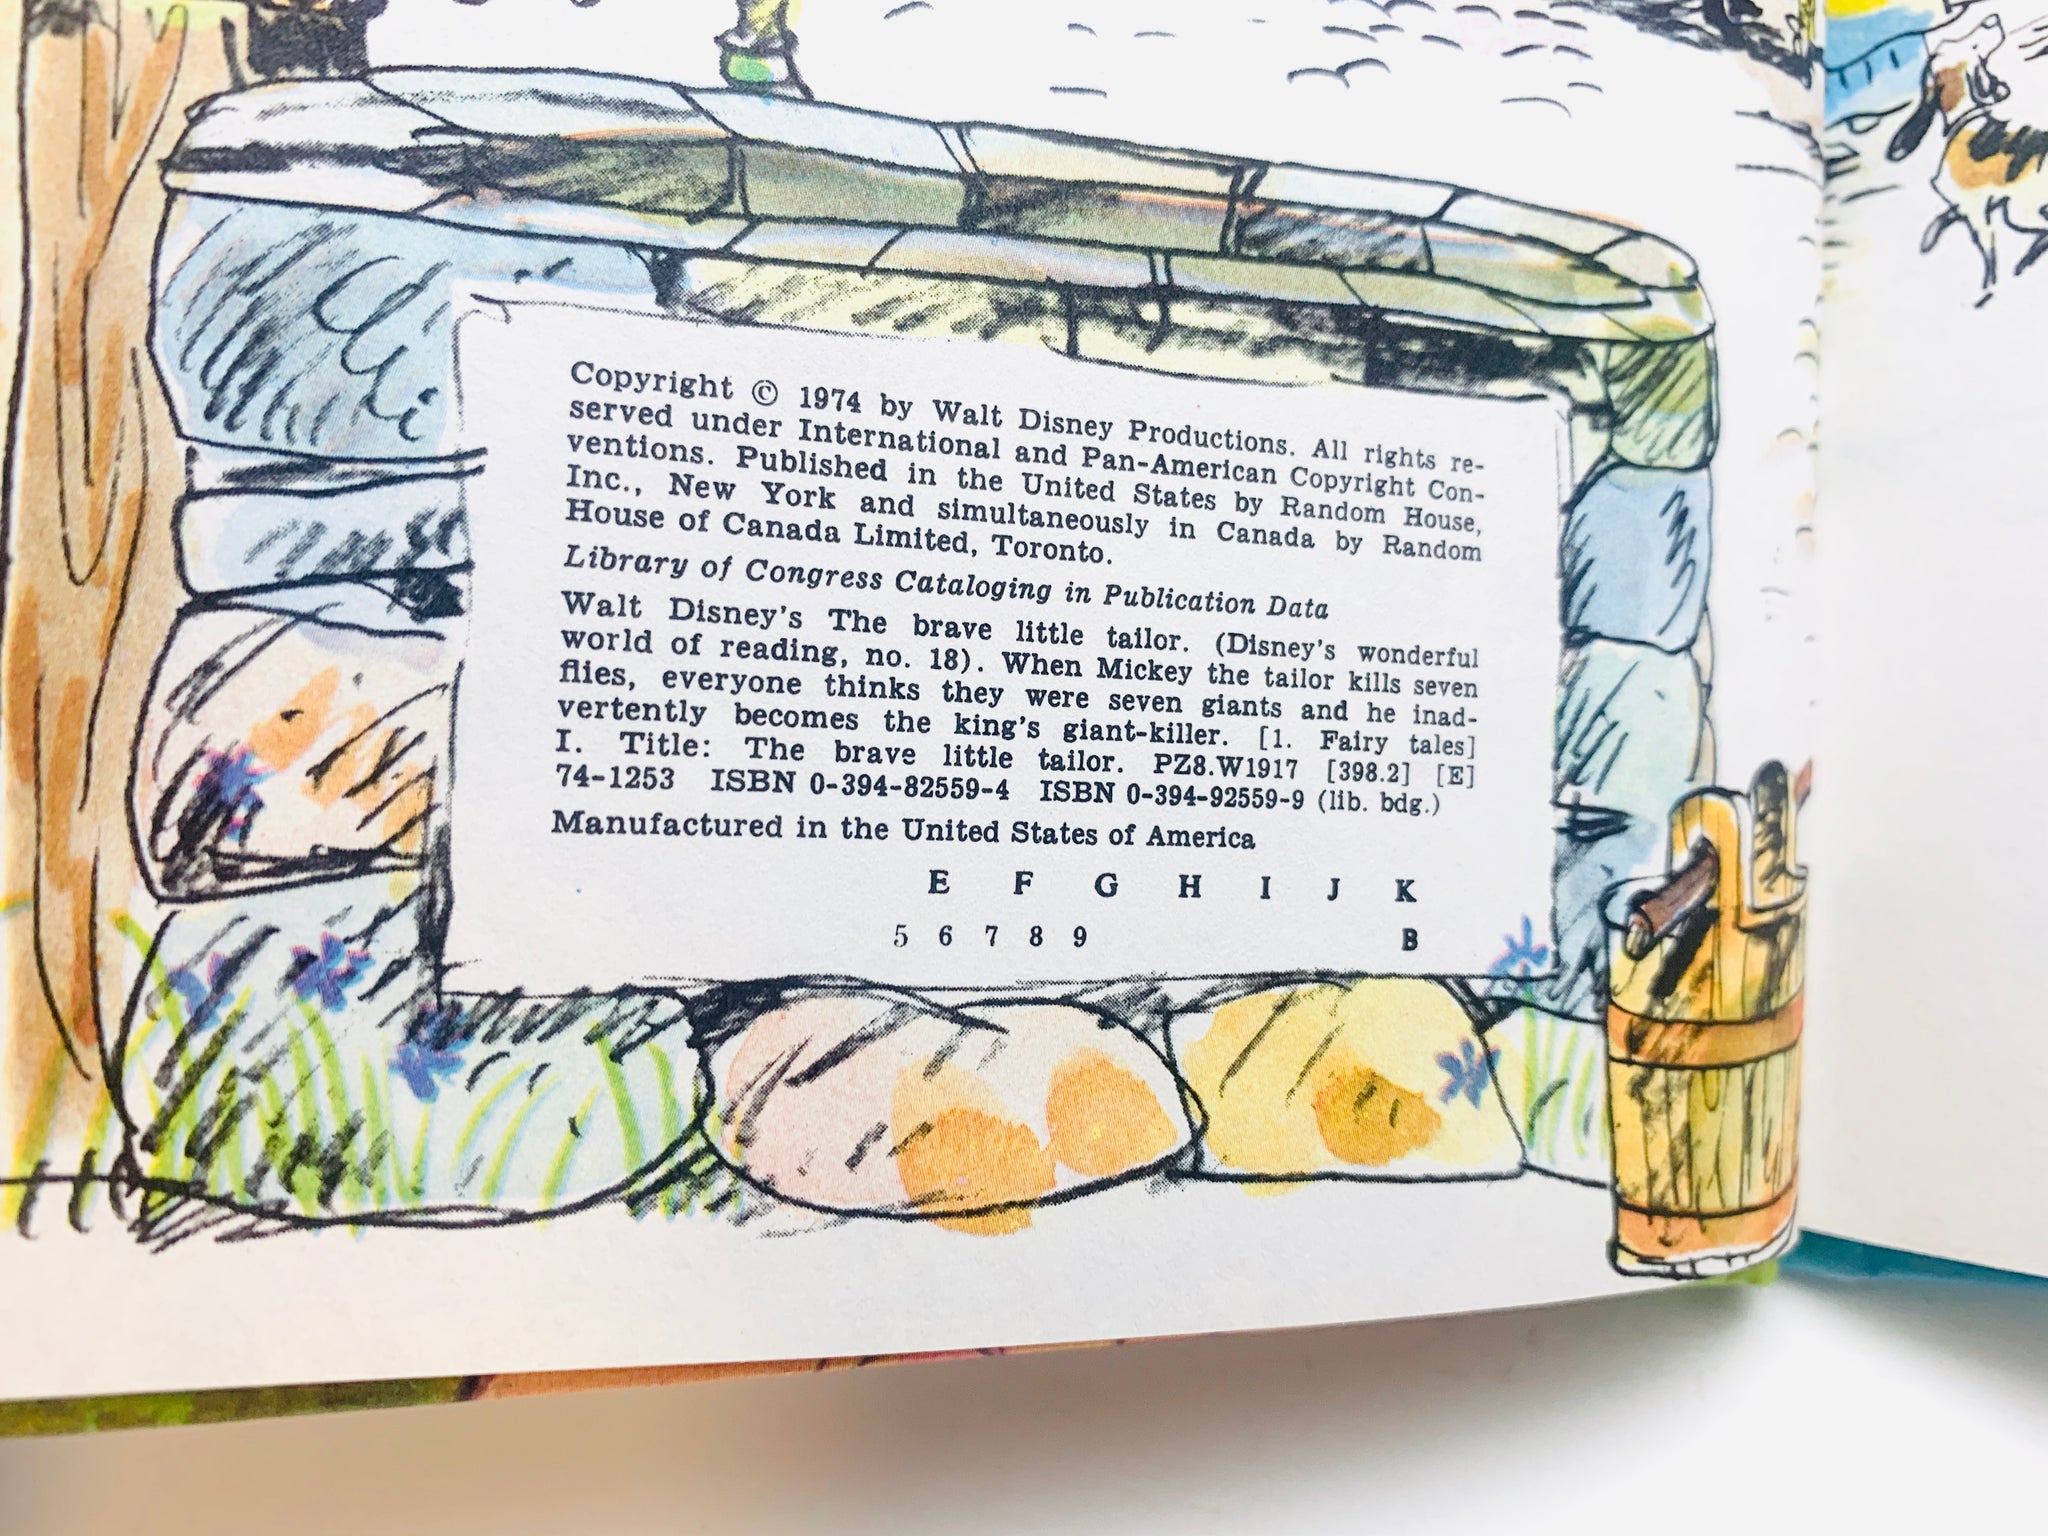 Copyright © 1974 by Walt Disney Productions. All rights re-
served under International and Pan-American Copyright Con-
ventions. Published in the United States by Random House,
Inc., New York and simultaneously in Canada by Random
House of Canada Limited, Toronto.
Library of Congress Cataloging in Publication Data
Walt Disney's The brave little tailor. (Disney's wonderful
world of reading, no. 18). When Mickey the tailor kills seven
flies, everyone thinks they were seven giants and he inad-
vertently becomes the king's giant-killer. [1. Fairy tales]
I. Title: The brave little tailor. PZ8.W1917 [398.2] [E]
74-1253 ISBN 0-394-82559-4 ISBN 0-394-92559-9 (lib. bdg.)
Manufactured in the United States of America
E F G H I J K
5 6 7 8 9 B